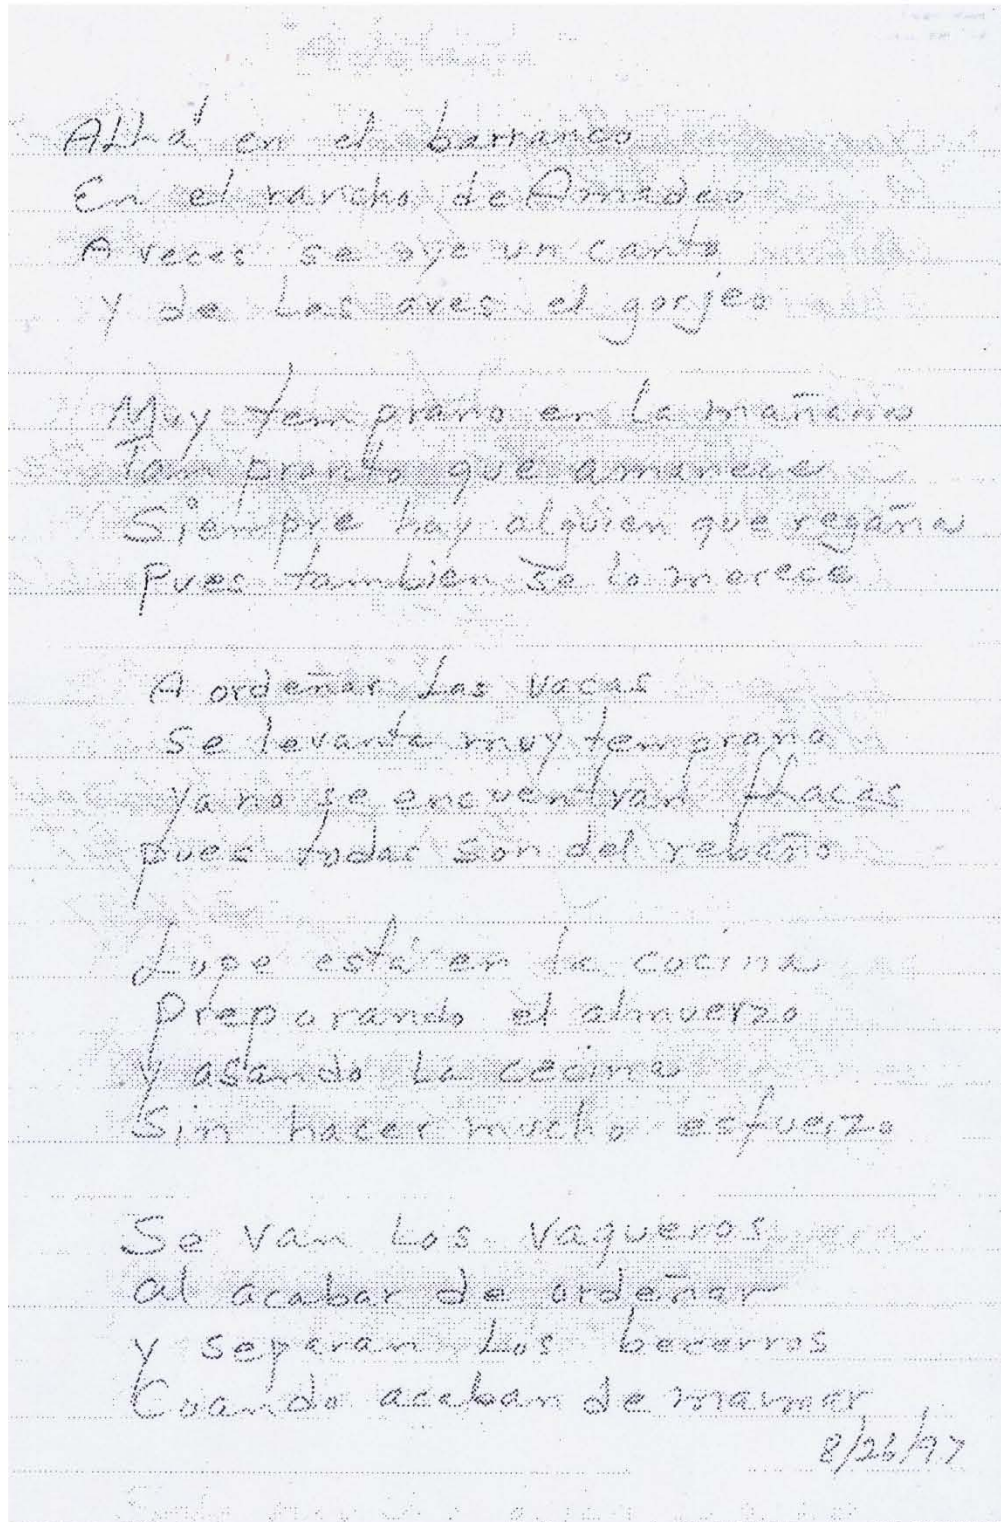 Allá en el barranco
En el rancho de Amedeo
A veces se oye un canto
Y de las aves el gorjeo
Muy temprano en la mañana
Tam pronto que amanece
Siempre hay alguien que regaña
Pues tambien se lo merece
A ordeñar las vacas
Se levanta muy temprano
Ya no se encuentran flacas
pues todas son del rebaño
Lupe está en la cocina
Preparando el almuerzo
Y asando la cecina
Sin hacer mucho esfuerzo
Se van los vaqueros
al acabar de ordeñar
y separan los becerros
Cuando acaban de mamar
8/26/97